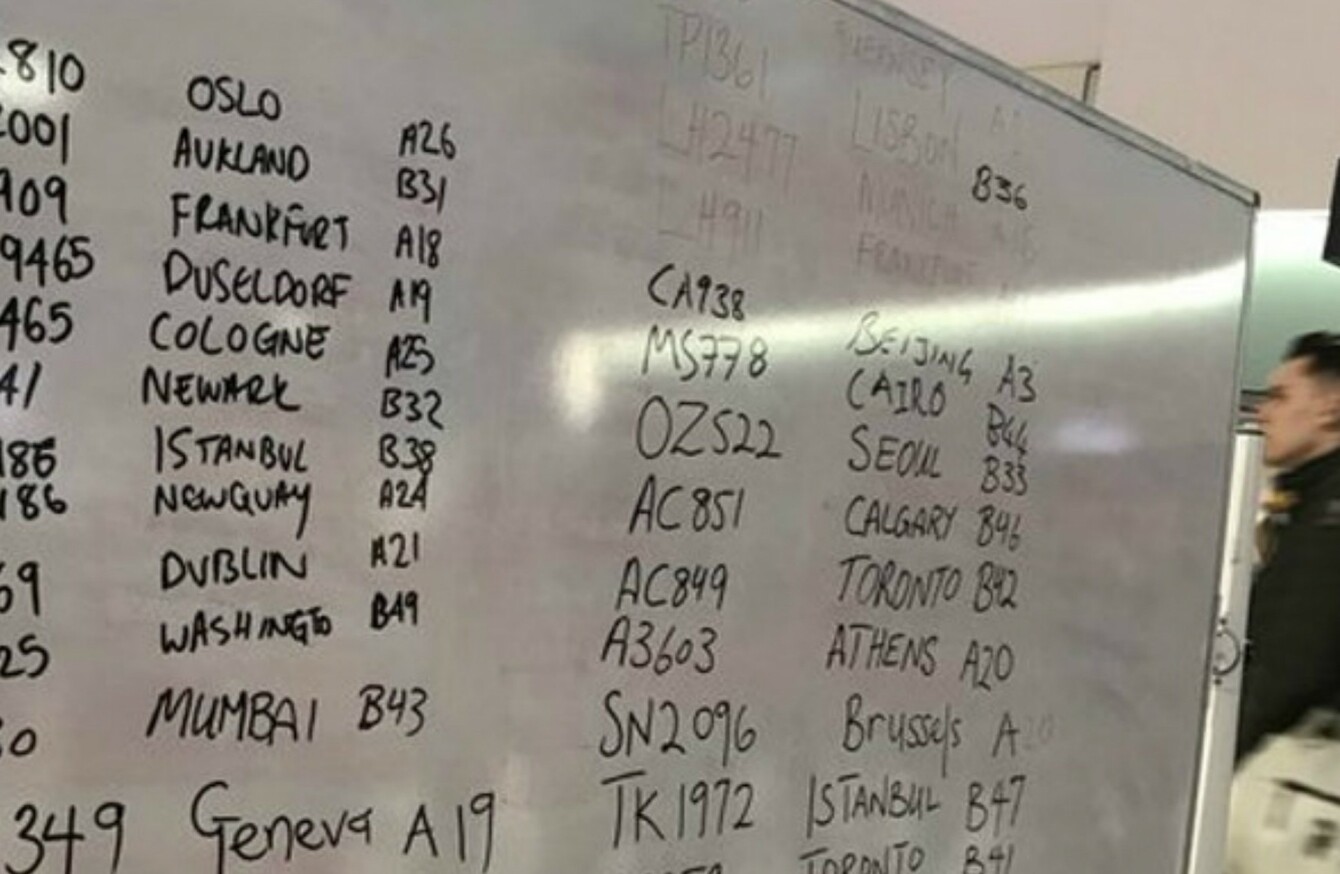 810 OSLO A26
001 AUKLAND B31
909 FRANKFURT A18
9465 DUSELDORF A19
465 COLOGNE A25
41 NEWARK B32
186 ISTANBUL B38
186 NEWQUAY A24
69 DUBLIN A21
25 WASHINGTO B49
30 MUMBAI B43
349 Geneva A19
TP1361 LISBON B36
LH2477 MUNICH
LH911 FRANKFURT
CA938 BEIJING A3
MS778 CAIRO B44
OZ522 SEOUL B33
AC851 CALGARY B46
AC849 TORONTO B42
A3603 ATHENS A20
SN2096 Brussels A20
TK1972 ISTANBUL B47
TORONTO B41